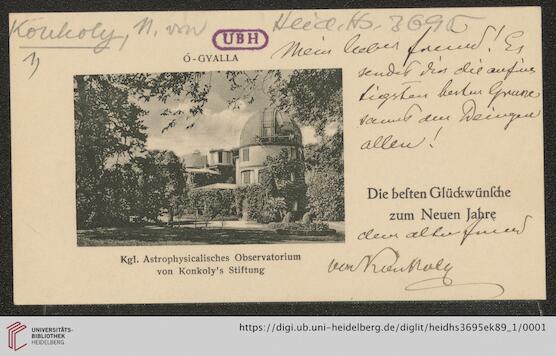 Konkoly, N. von
Heid. Hs. 3695
UBH
1)
Ó-GYALLA
Mein lieber Freund! Es
sendet dir die aufrich
tigsten besten Grüsse
samt den Deinigen
allen!
Die besten Glückwünsche
zum Neuen Jahre
dein alter Freund
von Konkoly
Kgl. Astrophysicalisches Observatorium
von Konkoly's Stiftung
UNIVERSITÄTS-
BIBLIOTHEK
HEIDELBERG
https://digi.ub.uni-heidelberg.de/diglit/heidhs3695ek89_1/0001